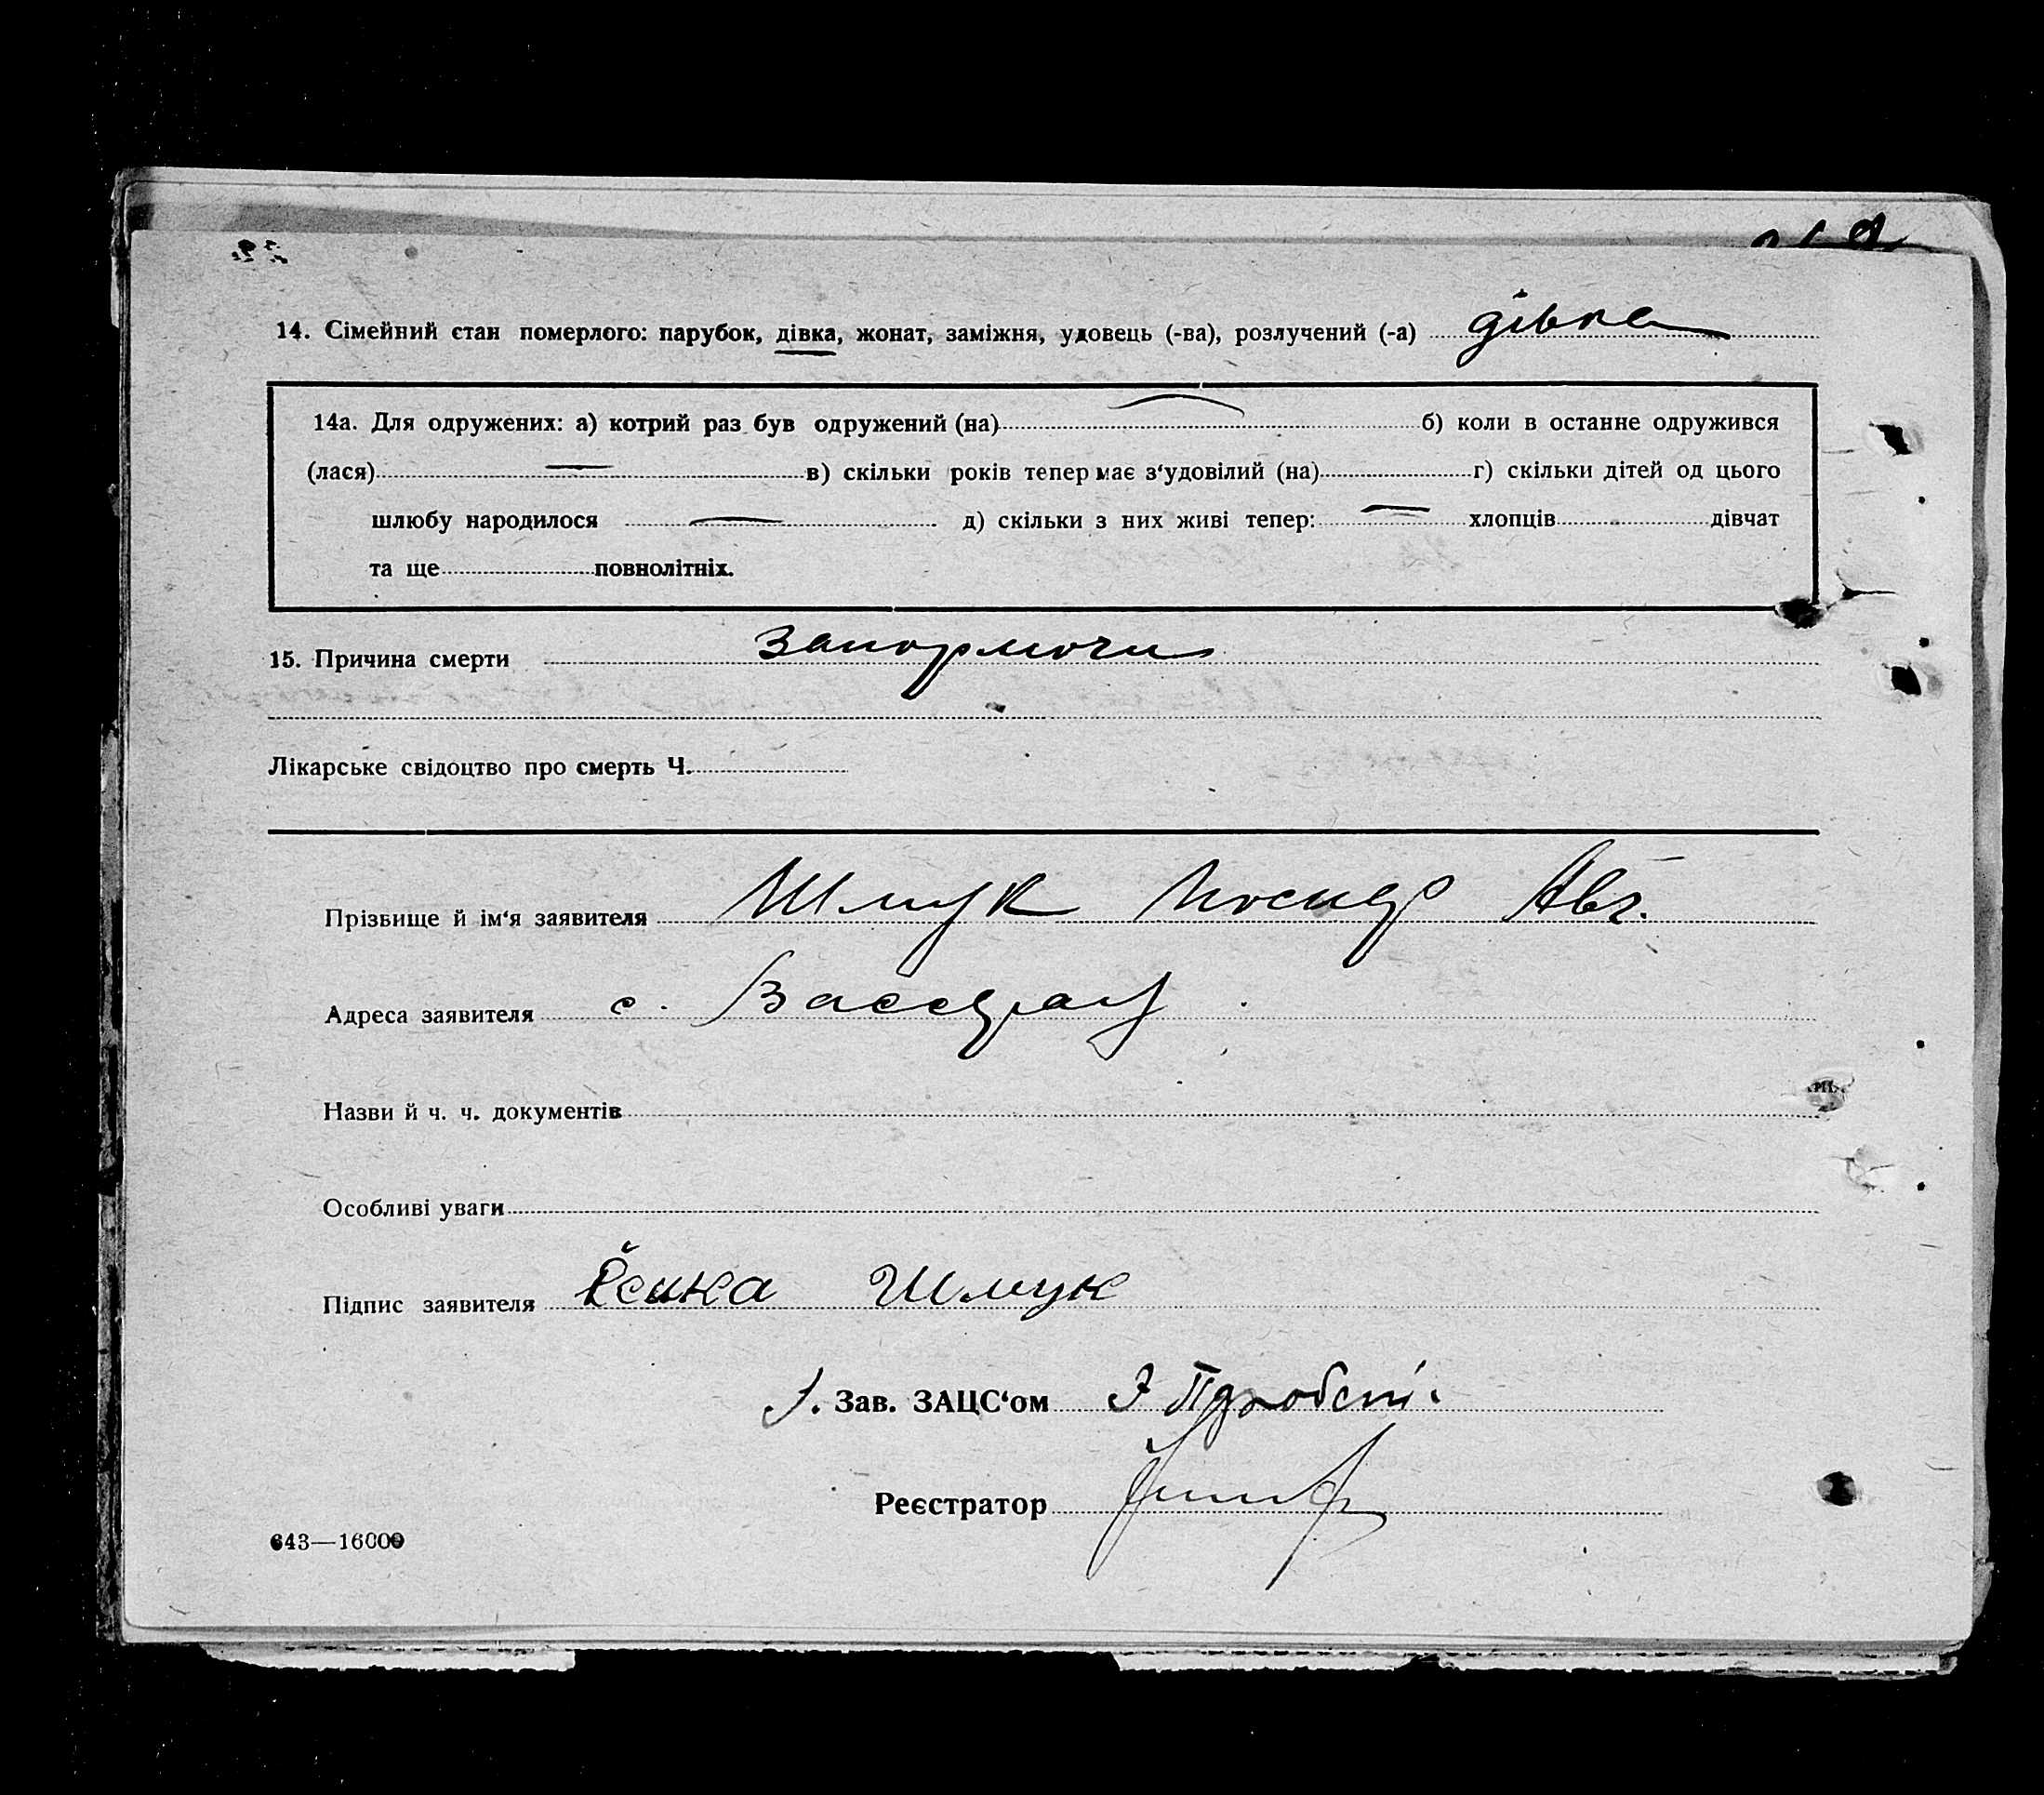 14. Сімейний стан померлого: парубок, дівка, жонат, заміжня, удовець (-ва), розлучений (-а) дівка
14а. Для одружених: а) котрий раз був одружений (на) б) коли в останне одружився
(лася) в) скільки років тепер має з‘удовілий (на) г) скільки дітей од цього
шлюбу народилося д) скільки з них живі тепер: хлопців дівчат
та ще повнолітніх.
15. Причина смерти
Лікарське свідоцтво про смерть Ч.
Прізвище й ім‘я заявителя Шмук Иосиф Авг.
Адреса заявителя с.
Назви й ч. ч. документів
Особливі уваги
Підпис заявителя Шмук
Зав. ЗАЦС‘ом
Реєстратор
643—16000